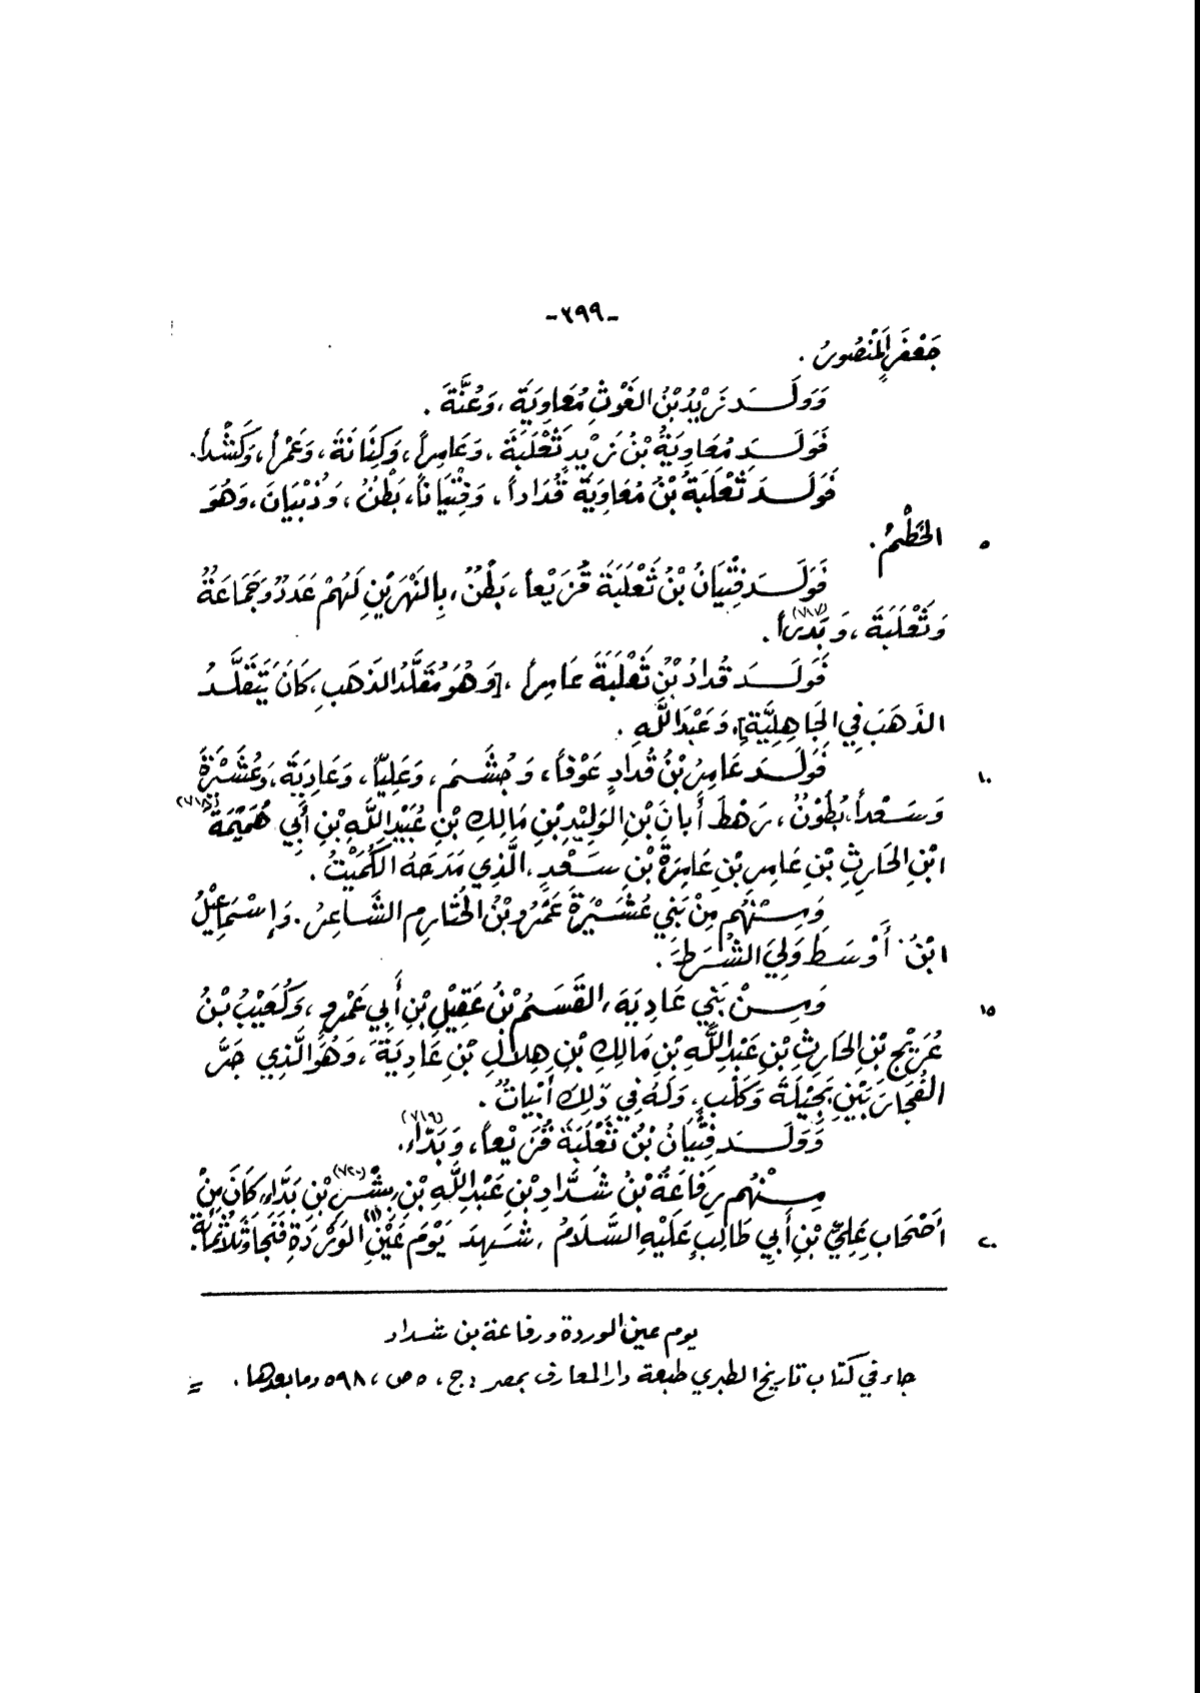 -٢٩٩-
جَعْفَرٍ المَنْصُورُ .
وَوَلَـدَ زَيْدُ بْنُ الغَوْثِ مُعَاوِيَةَ ، وَعُنَّةَ .
فَوَلَـدَ مُعَاوِيَةُ بْنُ زَيْدٍ ثَعْلَبَةَ ، وَعَامِراً ، وَكِنَانَةَ ، وَعَمْراً ، وَكَشْداً .
فَوَلَـدَ ثَعْلَبَةُ بْنُ مُعَاوِيَةَ قُدَاداً ، وَفِتْيَاناً ، بَطْنٌ ، وَذُبْيَانَ ، وَهُوَ
٥ الخَطْمُ .
فَوَلَـدَ فِتْيَانُ بْنُ ثَعْلَبَةَ قُرَيْعاً ، بَطْنٌ ، بِالنَهْرَيْنِ لَهُمْ عَدَدٌ وَجَمَاعَةٌ
وَثَعْلَبَةَ ، وَبَدْراً (٧١٧) .
فَوَلَـدَ قُدَادُ بْنُ ثَعْلَبَةَ عَامِراً ، [وَهُوَ مُقَلَّدُ الذَهَبِ ، كَانَ يَتَقَلَّـدُ
الذَهَبَ فِي الجَاهِلِيَّةِ] ، وَعَبْدَ اللَّهِ .
١٠ فَوَلَـدَ عَامِرُ بْنُ قُدَادٍ عَوْفاً ، وَجُشَـمَ ، وَعَلِيّاً ، وَعَادِيَةَ ، وَعُشَيْرَةَ
وَسَـعْداً ، بُطُوْنٌ ، رَهْطَ أَبَانَ بْنِ الوَلِيْدِ بْنِ مَالِكِ بْنِ عُبَيْدِ اللَّهِ بْنِ أَبِي هُمَيْمَةَ (٧١٨)
ابْنِ الحَارِثِ بْنِ عَامِرِ بْنِ عَامِرَةَ بْنِ سَـعْدٍ ، الَّذِي مَدَحَهُ الكُمَيْتُ .
وَمِـنْهُم مِنْ بَنِي عُشَـيْرَةَ عَمْرُو بْنُ الخُثَارِمِ الشَّاعِرُ . وَإِسْمَاعِيْلُ
ابْنُ أَوْسَـطَ وَلِيَ الشُـرَطَ .
١٥ وَمِـنْ بَنِي عَادِيَةَ ، القَسَـمُ بْنُ عَقِيْلِ بْنِ أَبِي عَمْرٍو ، وَكُعَيْبُ بْنُ
عُرَيْجِ بْنِ الحَارِثِ بْنِ عَبْدِ اللَّهِ بْنِ مَالِكِ بْنِ هِلَالِ بْنِ عَادِيَةَ ، وَهُوَ الَّذِي جَرَّ
الفُجَارَ بَيْنَ بَجِيْلَةَ وَكَلْبٍ ، وَلَهُ فِي ذَلِكَ أَبْيَاتٌ .
وَوَلَـدَ فِتْيَانُ بْنُ ثَعْلَبَةَ قُرَيْعاً ، وَبَدَّاءَ (٧١٩) .
مِـنْهُم رِفَاعَةُ بْنُ شَـدَّادِ بْنِ عَبْدِ اللَّهِ بْنِ بِشْرِ (٧٢٠) بْنِ بَدَّاءَ ، كَانَ مِنْ
٢٠ أَصْحَابِ عَلِيِّ بْنِ أَبِي طَالِبٍ عَلَيْهِ السَّلَامُ ، شَـهِدَ يَوْمَ عَيْنِ (١) الوَرْدَةِ فَنَجَا وَثَلاثُمِائَةٍ .
يوم عين الوردة ورفاعة بن شداد
جاء في كتاب تاريخ الطبري طبعة دار المعارف بمصر : ج ، ٥ ص ، ٥٩٨ وما بعدها . =